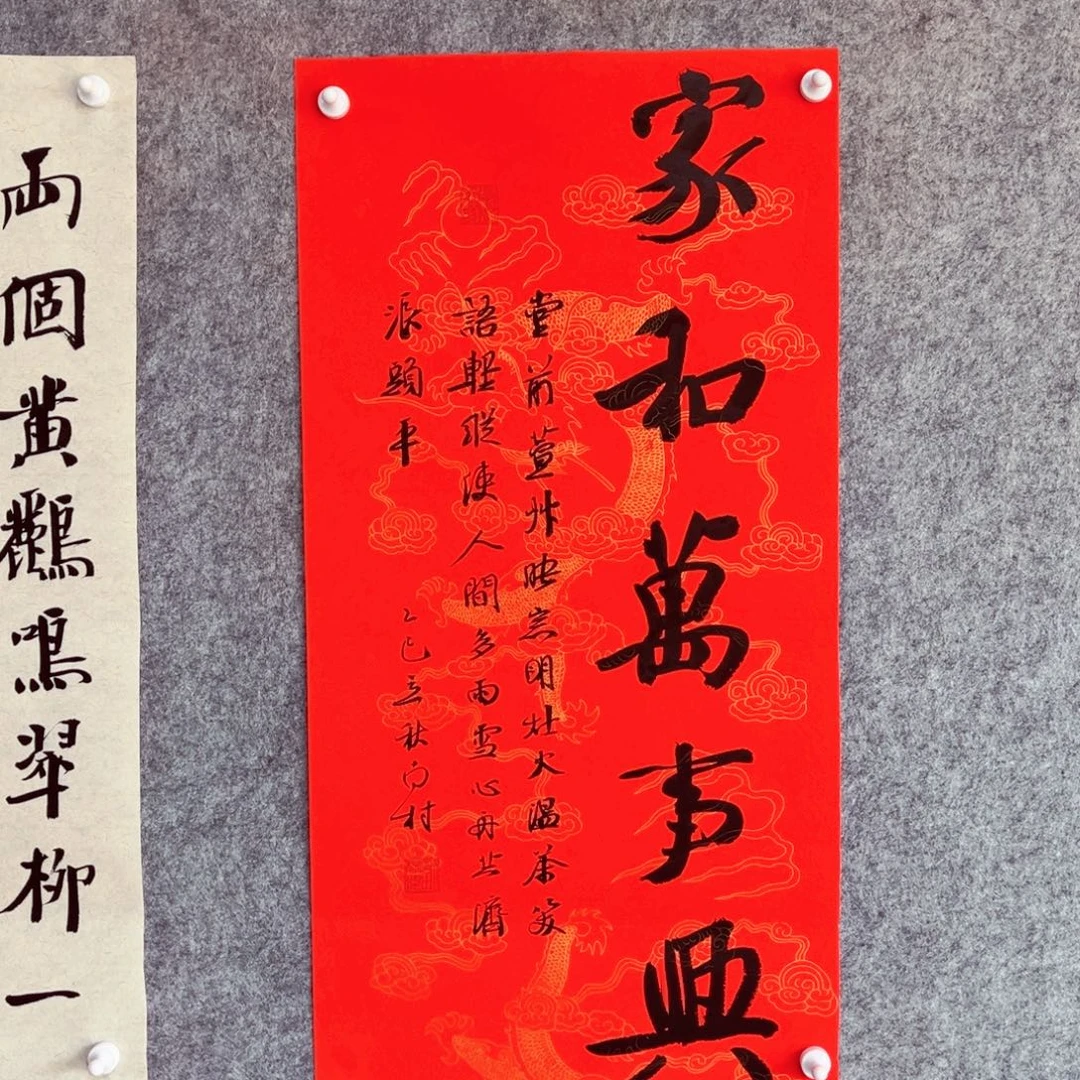 家和萬事興
堂前萱艸映窓明灶火温茶笑
語輕縱使人間多雨雪心舟共濟
浪頭平
乙巳立秋村
兩個黃鸝鳴翠柳一